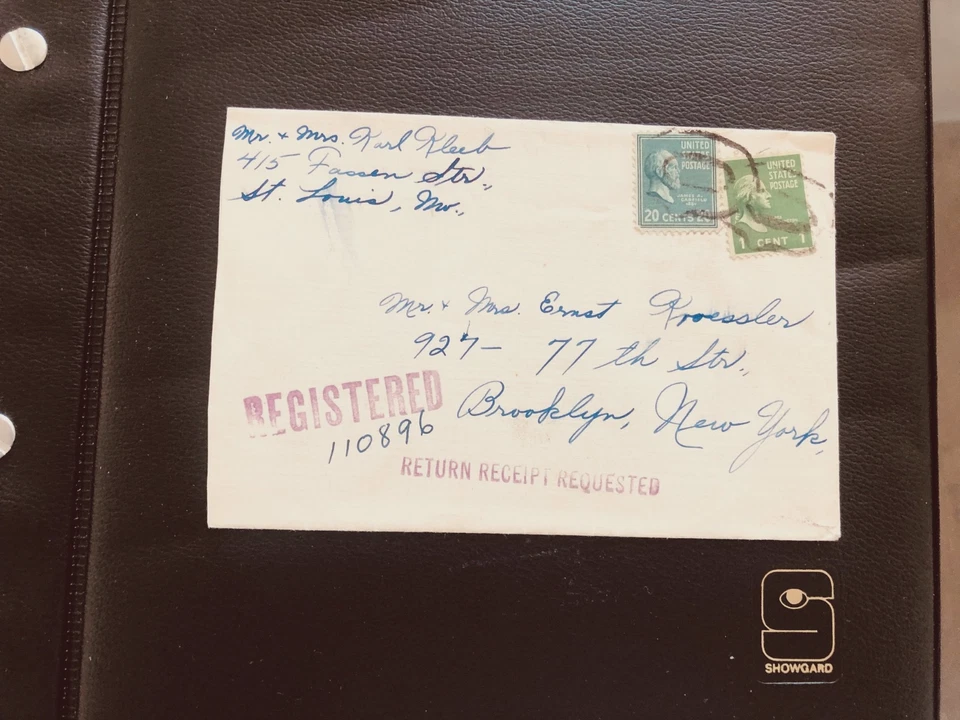 Mr. + Mrs. Karl Kleeb
415 Fassen Str.,
St. Louis, Mo.,
UNITED
STATES
POSTAGE
20 CENTS 20
UNITED
STATES
POSTAGE
1 CENT 1
Mr. + Mrs. Ernst Roessler
927 – 77 th Str.,
Brooklyn, New York,
REGISTERED
110896
RETURN RECEIPT REQUESTED
S
SHOWGARD